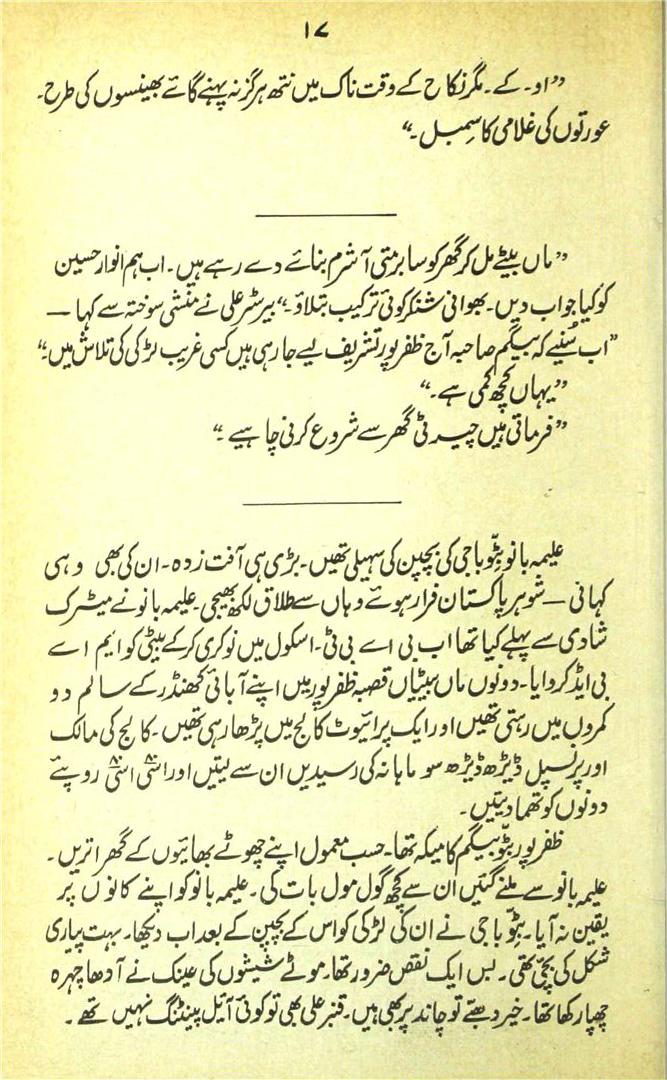 ۱۷
”او۔ کے۔ مگر نکاح کے وقت ناک میں نتھ ہرگز نہ پہنے گائے بھینسوں کی طرح۔
عورتوں کی غلامی کا سِمبل۔“
”ماں بیٹے مل کر گھر کو سابرمتی آشرم بنائے دے رہے ہیں۔ اب ہم انوار حسین
کو کیا جواب دیں۔ بھوانی شنکر کوئی ترکیب بتلاؤ۔“ بیرسٹر علی نے منشی سوختہ سے کہا —
”اب سُنیے کہ بیگم صاحبہ آج ظفر پور تشریف لیے جا رہی ہیں کسی غریب لڑکی کی تلاش میں۔“
”یہاں کچھ کمی ہے۔“
”فرماتی ہیں چیرٹی گھر سے شروع کرنی چاہیے۔“
علیمہ بانو بٹّو باجی کی بچپن کی سہیلی تھیں۔ بڑی ہی آفت زدہ۔ ان کی بھی وہی
کہانی — شوہر پاکستان فرار ہوئے وہاں سے طلاق لکھ بھیجی۔ علیمہ بانو نے میٹرک
شادی سے پہلے کیا تھا اب بی اے بی ٹی۔ اسکول میں نوکری کر کے بیٹی کو ایم اے
بی ایڈ کروایا۔ دونوں ماں بیٹیاں قصبہ ظفر پور میں اپنے آبائی کھنڈر کے سالم دو
کمروں میں رہتی تھیں اور ایک پرائیوٹ کالج میں پڑھا رہی تھیں۔ کالج کی مالک
اور پرنسپل ڈیڑھ ڈیڑھ سو ماہانہ کی رسیدیں ان سے لیتیں اور اسّی اسّی روپئے
دونوں کو تھما دیتیں۔
ظفر پور بٹّو بیگم کا میکہ تھا۔ حسب معمول اپنے چھوٹے بھائیوں کے گھر اتریں۔
علیمہ بانو سے ملنے گئیں ان سے کچھ گول مول بات کی۔ علیمہ بانو کو اپنے کانوں پر
یقین نہ آیا۔ بٹّو باجی نے ان کی لڑکی کو اس کے بچپن کے بعد اب دیکھا۔ بہت پیاری
شکل کی بچّی تھی۔ بس ایک نقص ضرور تھا۔ موٹے شیشوں کی عینک نے آدھا چہرہ
چھپا رکھا تھا۔ خیر دھبّے تو چاند پر بھی ہیں۔ قنبر علی بھی تو کوئی آئیل پینٹنگ نہیں تھے۔